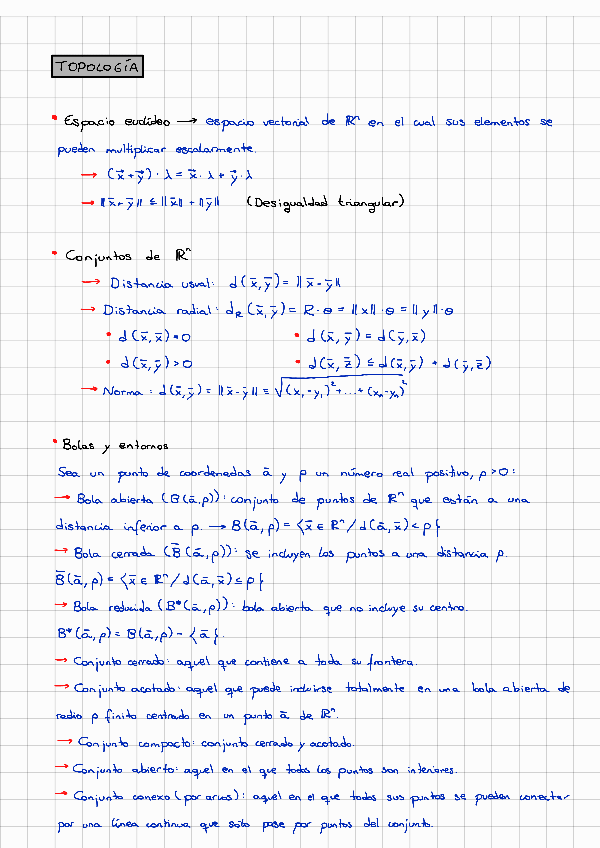 TOPOLOGÍA
• Espacio euclídeo → espacio vectorial de ℝⁿ en el cual sus elementos se
pueden multiplicar escalarmente.
→ (x⃗+y⃗)·λ = x⃗·λ + y⃗·λ
→ ‖x̄+ȳ‖ ≤ ‖x̄‖ + ‖ȳ‖ (Desigualdad triangular)
• Conjuntos de ℝⁿ
→ Distancia usual: d(x̄,ȳ) = ‖x̄-ȳ‖
→ Distancia radial: d_R(x̄,ȳ) = R·θ = ‖x‖·θ = ‖y‖·θ
• d(x̄,x̄)=0 • d(x̄,ȳ) = d(ȳ,x̄)
• d(x̄,ȳ)>0 • d(x̄,z̄) ≤ d(x̄,ȳ) + d(ȳ,z̄)
→ Norma: d(x̄,ȳ) = ‖x̄-ȳ‖ = √((x₁-y₁)²+...+(xₙ-yₙ)²)
• Bolas y entornos
Sea un punto de coordenadas ā y ρ un número real positivo, ρ>0:
→ Bola abierta (B(ā,ρ)): conjunto de puntos de ℝⁿ que están a una
distancia inferior a ρ. → B(ā,ρ) = {x̄ ∈ ℝⁿ / d(ā,x̄) < ρ}
→ Bola cerrada (B̄(ā,ρ)): se incluyen los puntos a una distancia ρ.
B̄(ā,ρ) = {x̄ ∈ ℝⁿ / d(ā,x̄) ≤ ρ}
→ Bola reducida (B*(ā,ρ)): bola abierta que no incluye su centro.
B*(ā,ρ) = B(ā,ρ) - {ā}.
→ Conjunto cerrado: aquel que contiene a toda su frontera.
→ Conjunto acotado: aquel que puede incluirse totalmente en una bola abierta de
radio ρ finito centrado en un punto ā de ℝⁿ.
→ Conjunto compacto: conjunto cerrado y acotado.
→ Conjunto abierto: aquel en el que todos los puntos son interiores.
→ Conjunto conexo (por arcos): aquel en el que todos sus puntos se pueden conectar
por una línea continua que solo pase por puntos del conjunto.